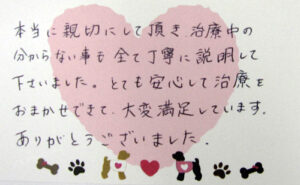 本当に親切にして頂き、治療中の
分からない事も全て丁寧に説明して
下さいました。とても安心して治療を
おまかせできて、大変満足しています。
ありがとうございました.